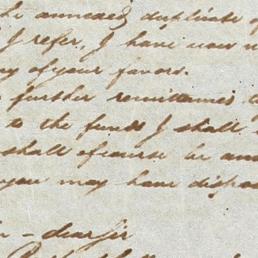 the annexed duplicate of
I refer, I have now
of your favors.
further remittances
to the funds I shall
shall of course be
you may have
dear Sir